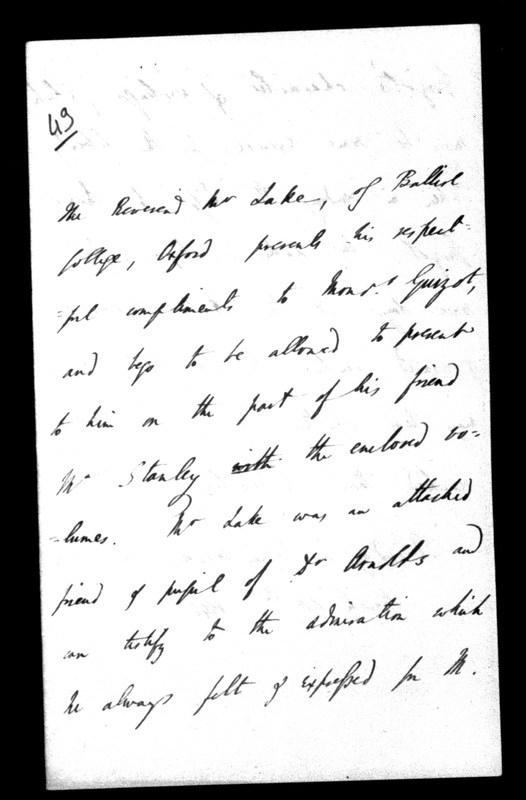 49
The Reverend Mr Lake, of Balliol
College, Oxford presents his respect-
=ful compliments to Monsr. Guizot,
and begs to be allowed to present
to him on the part of his friend
Mr Stanley with the enclosed vo=
=lumes. Mr Lake was an attached
friend & pupil of Dr Arnolds and
can testify to the admiration which
he always felt & expressed for M.